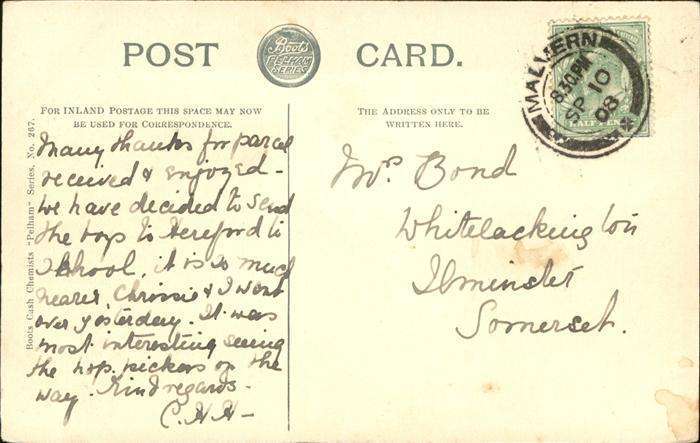 POST CARD.
Boots
PELHAM
SERIES
MALVERN
8.30PM
SP 10
08
FOR INLAND POSTAGE THIS SPACE MAY NOW
BE USED FOR CORRESPONDENCE.
THE ADDRESS ONLY TO BE
WRITTEN HERE.
Boots Cash Chemists "Pelham" Series, No. 267.
Many thanks for parcel
received & enjoyed -
we have decided to send
the boys to Hereford to
School, it is so much
nearer, Chrissie & I went
over yesterday. It was
most interesting seeing
the hop pickers on the
way. Kind regards -
C. H. H -
Mrs Bond
Whitelackington
Ilminster
Somerset.